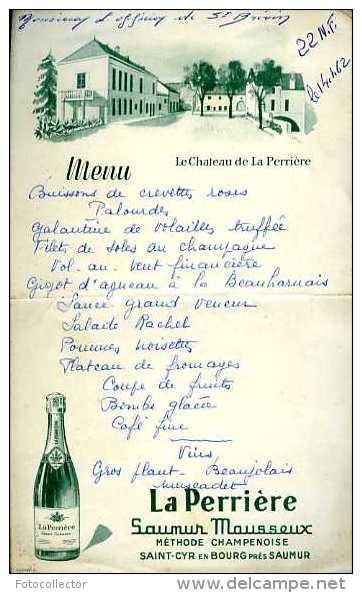 Monsieur L'officier de St Brevin
22 N.F.
le 14.1.62
Menu
Le Chateau de La Perrière
Buissons de crevettes roses
Palourdes
Galantine de volailles truffée
Filets de soles au champagne
Vol-au-vent financière
Gigot d'agneau à la Beauharnais
Sauce grand veneur
Salade Rachel
Pommes noisettes
Plateau de fromages
Coupe de fruits
Bombe glacée
Café fine
Vins
Gros plant - Beaujolais
Muscadet
La Perrière
La Perrière
Saumur Mousseux
MÉTHODE CHAMPENOISE
SAINT-CYR EN BOURG PRÈS SAUMUR
Fotocollector
delcampe.net